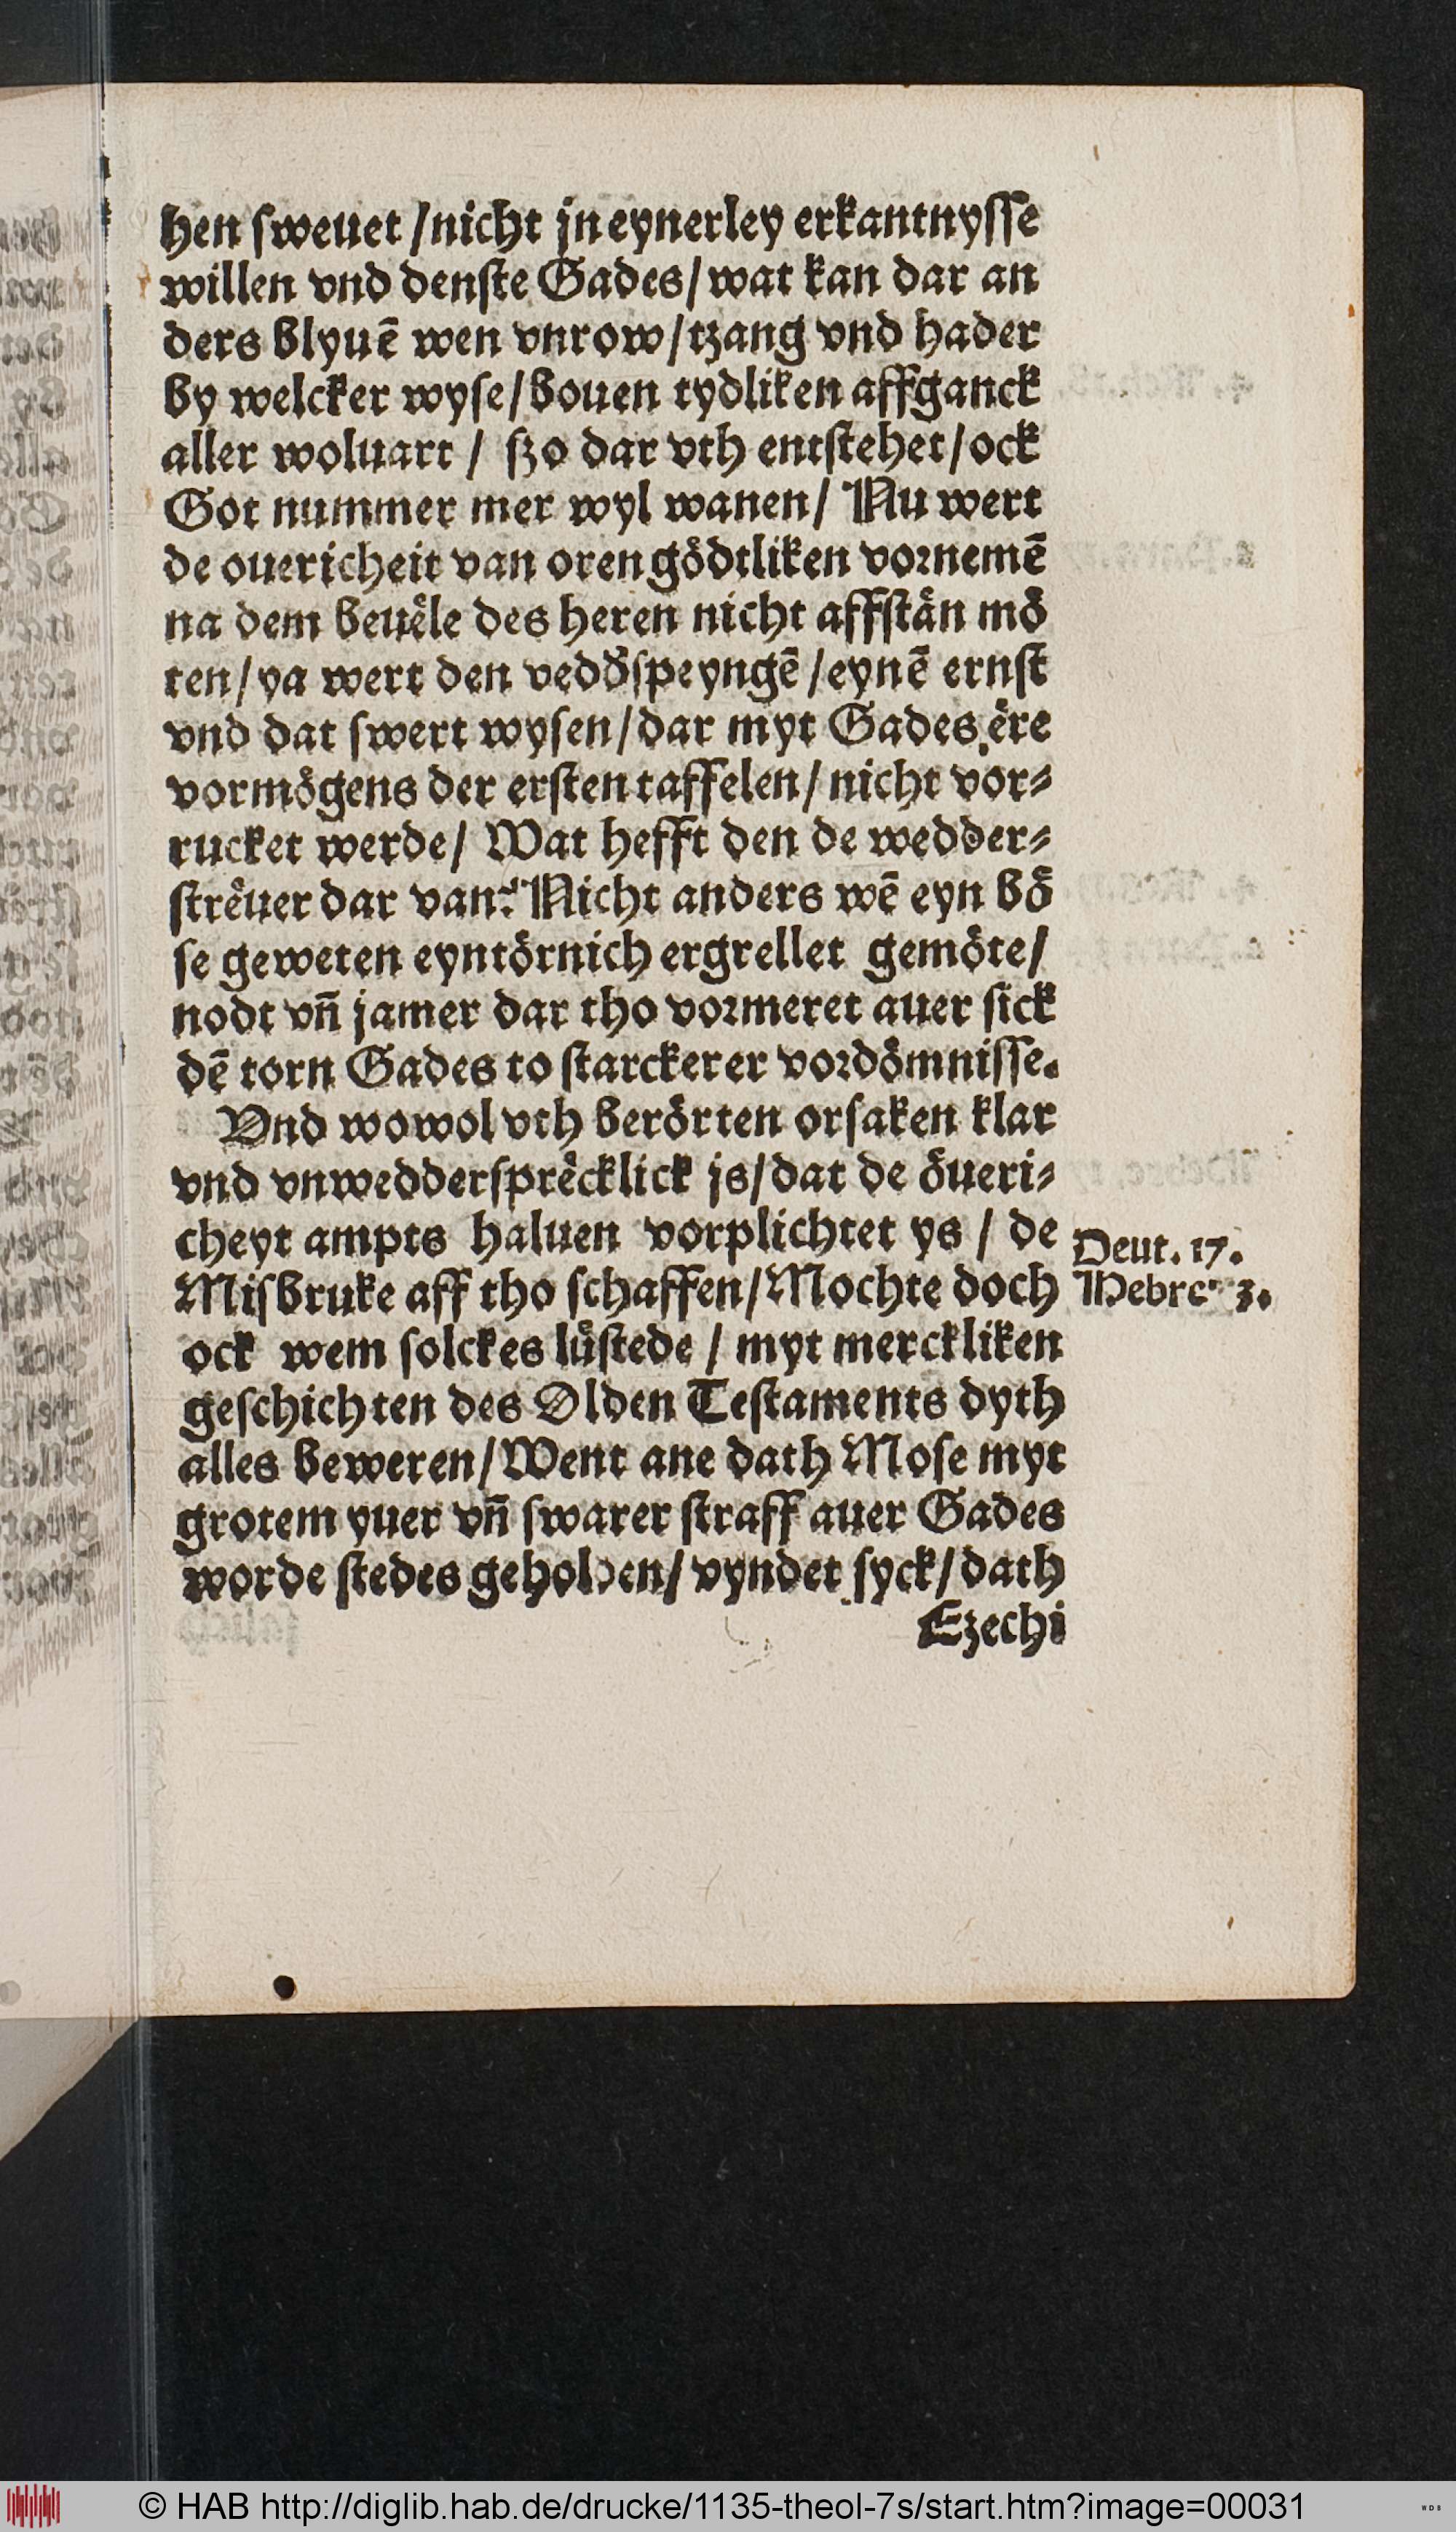 hen ſweuet /nicht jn eynerley erkantnyſſe
willen vnd denſte Gades/ wat kan dar an
ders blyuē wen vnrow/tzang vnd hader
by welcker wyſe/bouen tydliken affganck
aller woluart / ſzo dar vth entſtehet/ock
Got nummer mer wyl wanen/ Nu wert
de ouericheit van oren gödtliken vornemē
na dem beuële des heren nicht affſtän mö
ten/ya wert den ſpeyngē /eynē ernſt
vnd dat ſwert wyſen/dar myt Gades ëre
vormögens der erſten taffelen/nicht vor⸗
rucket werde/ Wat hefft den de wedder⸗
ſtrëuer dar van? Nicht anders wē eyn bö
ſe geweten eyntörnich ergrellet gemöte/
nodt vn̄ jamer dar tho vormeret auer ſick
dē torn Gades to ſtarckerer vordömniſſe.
Vnd wowol vth berörten orſaken klar
vnd vnwedderſprëcklick js/dat de öueri⸗
cheyt ampts haluen vorplichtet ys / de
Miſbruke aff tho ſchaffen/Mochte doch
ock wem ſolckes lüſtede / myt merckliken
geſchichten des Olden Teſtaments dyth
alles beweren/Went ane dath Moſe myt
grotem yuer vn̄ ſwarer ſtraff auer Gades
worde ſtedes geholden/ vyndet ſyck/dath
Ezechi
Deut. 17.
Hebre. 3.
© HAB http://diglib.hab.de/drucke/1135-theol-7s/start.htm?image=00031
WDB